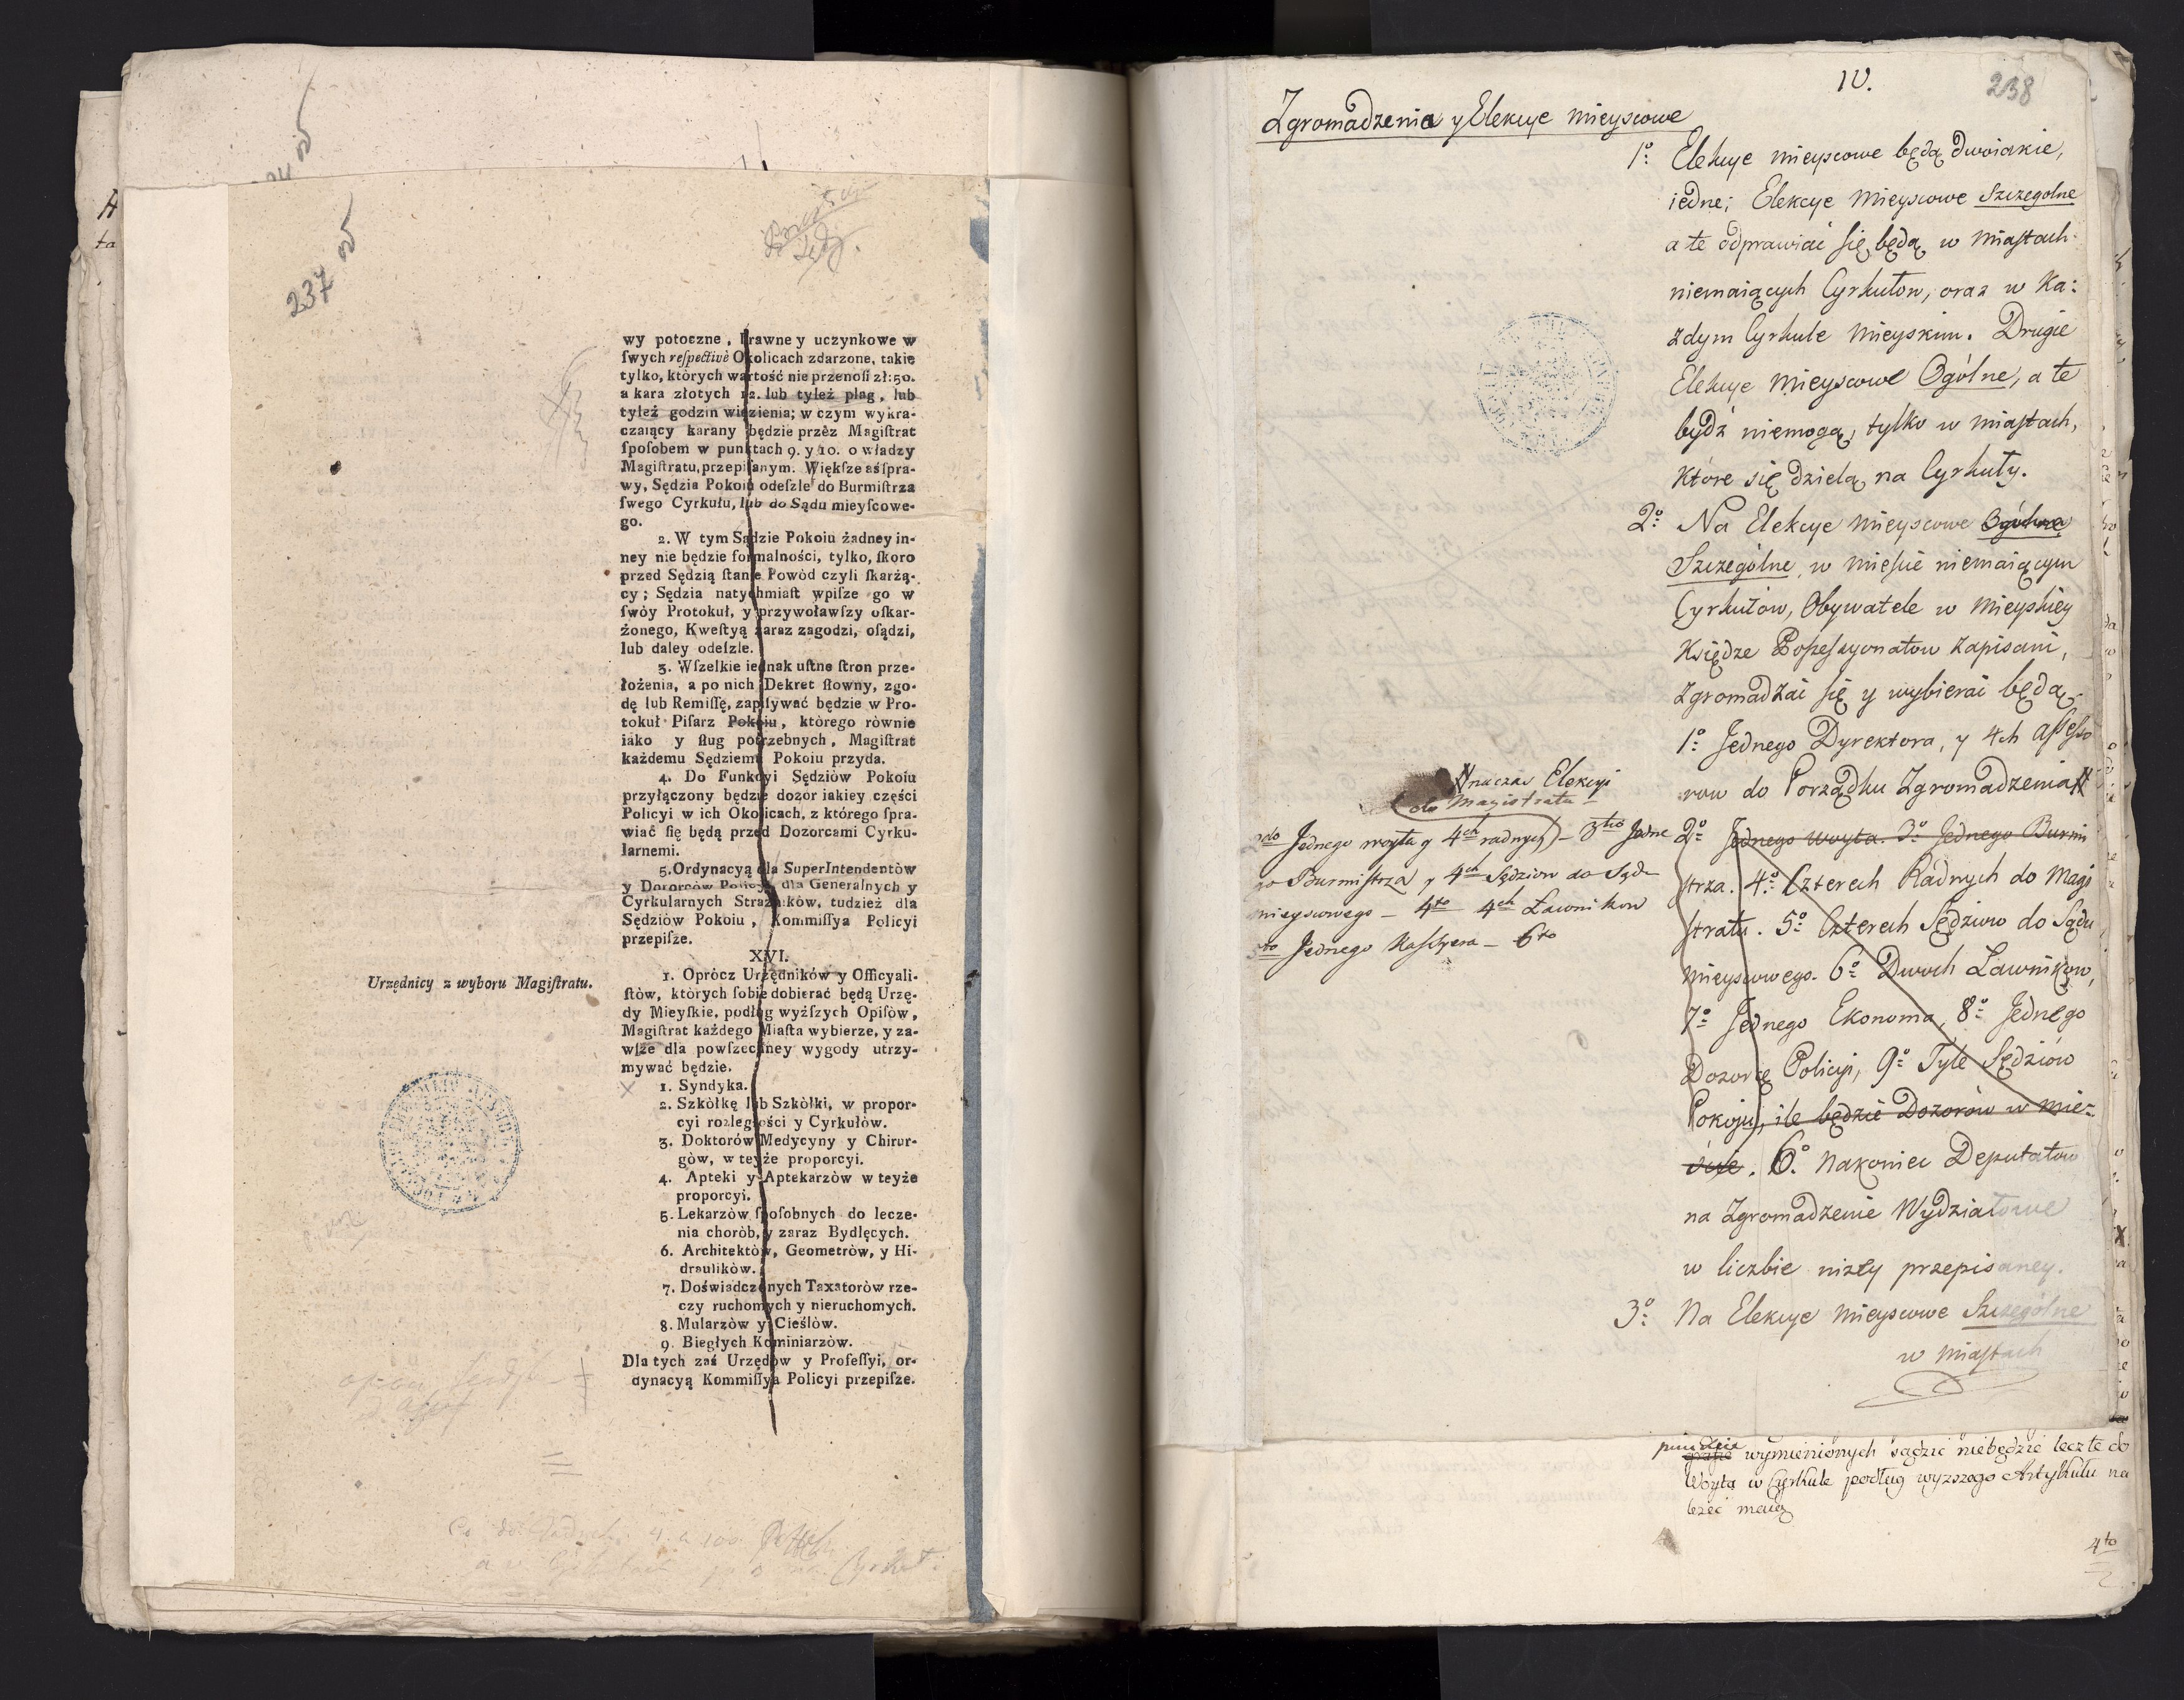 237
wy potoczne, Prawne y uczynkowe w
ſwych reſpectivè Okolicach zdarzone, takie
tylko, których wartość nie przenoſi zł: 50.
a kara złotych 12. lub tyleż plag, lub
tyleż godzin więzienia; w czym wykra-
czaiący karany będzie przèz Magiſtrat
ſpoſobem w punktach 9. y 10. o władzy
Magiſtratu, przepiſanym. Więkſze aś ſpra-
wy, Sędzia Pokoiu odeſzle do Burmiſtrza
ſwego Cyrkułu, lub do Sądu mieyſcowe-
go.
2. W tym Sądzie Pokoiu żadney in-
ney nie będzie formalności, tylko, ſkoro
przed Sędzią ſtanie Powòd czyli ſkarżą-
cy; Sędzia natychmiaſt wpiſze go w
ſwóy Protokuł, y przywoławſzy oſkar-
żonego, Kweſtyą zaraz zagodzi, oſądzi,
lub daley odeſzle.
3. Wſzelkie iednak uſtne ſtron prze-
łożenia, a po nich Dekret ſłowny, zgo-
dę lub Remiſſę, zapiſywać będzie w Pro-
tokuł Piſarz Pokoiu, którego równie
iako y ſług potrzebnych, Magiſtrat
każdemu Sędziemu Pokoiu przyda.
4. Do Funkcyi Sędziòw Pokoiu
przyłączony będzie dozór iakiey części
Policyi w ich Okolicach, z którego ſpra-
wiać ſię będą przed Dozorcami Cyrku-
larnemi.
5. Ordynacyą dla SuperIntendentòw
y Dozorców Policyi, dla Generalnych y
Cyrkularnych Strażników, tudzież dla
Sędziów Pokoiu, Kommiſſya Policyi
przepiſze.
XVI.
Urzędnicy z wyboru Magiſtratu.
1. Opròcz Urzędników y Officyali-
ſtòw, których ſobie dobierać będą Urzę-
dy Mieyſkie, podług wyżſzych Opiſòw,
Magiſtrat każdego Miaſta wybierze, y za-
wſze dla powſzechney wygody utrzy-
mywać będzie.
1. Syndyka.
2. Szkòłkę lub Szkòłki, w propor-
cyi rozległości y Cyrkułòw.
3. Doktoròw Medycyny y Chirur-
gòw, w teyże proporcyi.
4. Apteki y Aptekarzòw w teyże
proporcyi.
5. Lekarzòw ſpoſobnych do lecze-
nia choròb, y zaraz Bydlęcych.
6. Architektòw, Geometròw, y Hi-
draulikòw.
7. Doświadczonych Taxatoròw rze-
czy ruchomych y nieruchomych.
8. Mularzòw y Cieślòw.
9. Biegłych Kominiarzòw.
Dla tych zaś Urzędòw y Profeſſyi, or-
dynacyą Kommiſſya Policyi przepiſze.
IV.
238
Zgromadzenia y Elekcye mieyscowe
1º Elekcye mieyscowe będą dwoiakie,
iedne; Elekcye Mieyscowe Szczegolne
a te odprawiać się będą w miastach
niemaiących Cyrkułow, oraz w Ka:
zdym Cyrkule Mieyskim. Drugie
Elekcye mieyscowe Ogólne, a te
bydź niemogą, tylko w miastach,
które się dzielą na Cyrkuły.
2º Na Elekcye mieyscowe Ogólne
Szczególne w mieście niemaiącym
Cyrkułow, Obywatele w Mieyskiey
Księdze Possessyonatow zapisani,
zgromadzać się y wybierać będą
1º Jednego Dyrektora, y 4ch assesso
row do Porządku Zgromadzenia
na czas Elekcyi
do Magistratu
2do Jednego woyta y 4ch radnych) – 3tio Jedne
go Burmistrza y 4ch Sędziow do Sądu
mieyscowego – 4to 4ch Ławnikow
5to Jednego Kassyera – 6to
2º Jednego woyta. 3º Jednego Burmi
strza. 4º Czterech Radnych do Magi
stratu. 5º Czterech Sędziow do Sądu
mieyscowego. 6º Dwoch Ławnikow,
7º Jednego Ekonoma, 8º Jednego
Dozorcę Policyi, 9º Tyle Sędziow
Pokoju, ile będzie Dozorow w mie-
ście. 6º Nakoniec Deputatow
na Zgromadzenie Wydziałowe
w liczbie niżey przepisaney.
3º Na Elekcye mieyscowe Szczególne
w miastach
wymienionych sądzić niebędzie lecz te do
Woyta w Cyrkule podług wyzszego Artykułu na
leżeć maią
4to